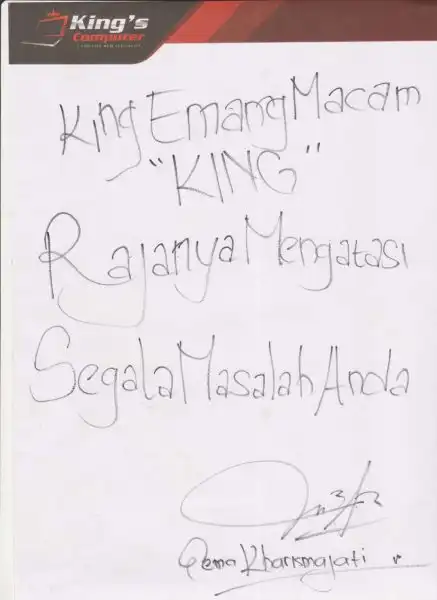 King's
Computer
King Emang Macam
"KING"
Rajanya Mengatasi
Segala Masalah Anda
Kharismajati